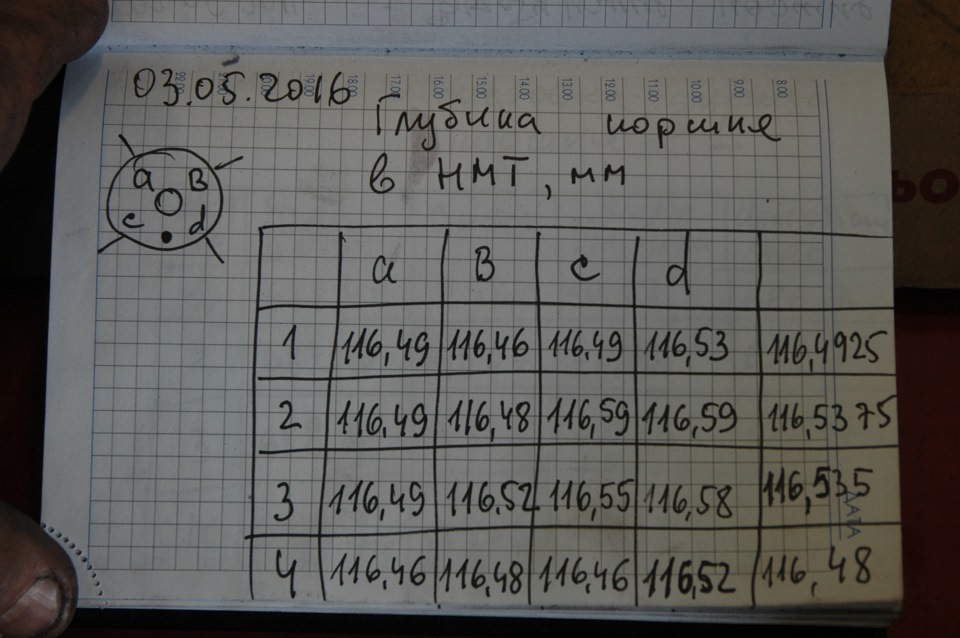 03.05.2016
22.00 21.00 20.00 19.00 18.00 17.00 16.00 15.00 14.00 13.00 12.00 11.00 10.00 9.00 8.00
Глубина поршня
в НМТ, мм
a B
c d
a B c d
1 116,49 116,46 116.49 116,53 116,4925
2 116,49 116,48 116,59 116,59 116,5375
3 116,49 116.52 116,55 116,58 116,535
4 116,46 116,48 116,46 116,52 116,48
ДАТА
ЬО